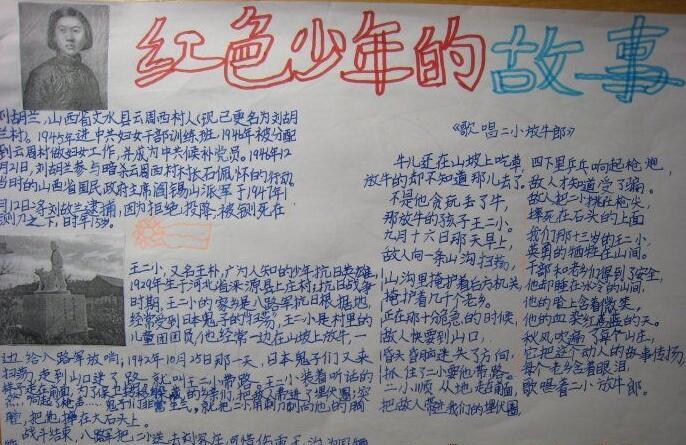 红色少年的故事
刘胡兰，山西省文水县云周西村人(现已更名为刘胡
兰村)。1945年进中共妇女干部训练班，1946年被分配
到云周村做妇女工作，并成为中共候补党员。1946年12
月21日，刘胡兰参与暗杀云周西村村长石佩怀的行动。
当时的山西省国民政府主席阎锡山派军于1947年1
月12日将刘故兰逮捕，因为拒绝投降，被铡死在
铡刀之下，时年15岁。
王二小，又名王朴，广为人知的少年抗日英雄，
1929年生于河北省涞源县上庄村。抗日战争
时期，王二小的家乡是八路军抗日根据地，
经常受到日本鬼子的"扫荡"，王二小是村里的
儿童团团员，他经常一边在山坡上放牛，一
边给八路军放哨，1942年10月25日那一天，日本鬼子们又来
扫荡，走到山口迷了路，就叫王二小带路。王二小装着听话的
样子走在前面，为了保卫转移躲藏的乡亲们，把敌人带进了埋伏圈，突
鬼子们非常生气，就把二小用刺刀刺向他的胸
膛，把他摔在大石头上。
战斗结束，八路军把二小送去
《歌唱二小放牛郎》
牛儿还在山坡上吃草，
放牛的却不知道那儿去了。
不是他贪玩丢了牛，
那放牛的孩子王二小。
九月十六日那天早上，
敌人向一条山沟扫荡，
山沟里掩护着后方机关，
掩护着几千个老乡。
正在那十分危急的时候，
敌人快要到山口，
昏头昏脑迷失了方向，
抓住了二小要他带路。
二小顺从地走在前面，
把敌人带进我们的埋伏圈，
四下里乒乓响起枪炮，
敌人才知道受了骗。
敌人把二小挑在枪尖，
摔死在石头的上面
我们那十三岁的王二小，
英勇的牺牲在山间。
干部和老乡们得到了安全，
他却睡在冰冷的山间，
他的脸上含着微笑，
他的血染红蓝蓝的天。
秋风吹遍了每个山庄，
它把这个动人的故事传扬，
每个老乡含着眼泪，
歌唱着二小放牛郎。